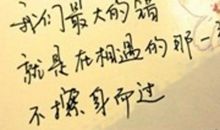 我们最大的错
就是在相遇的那一
不擦身而过